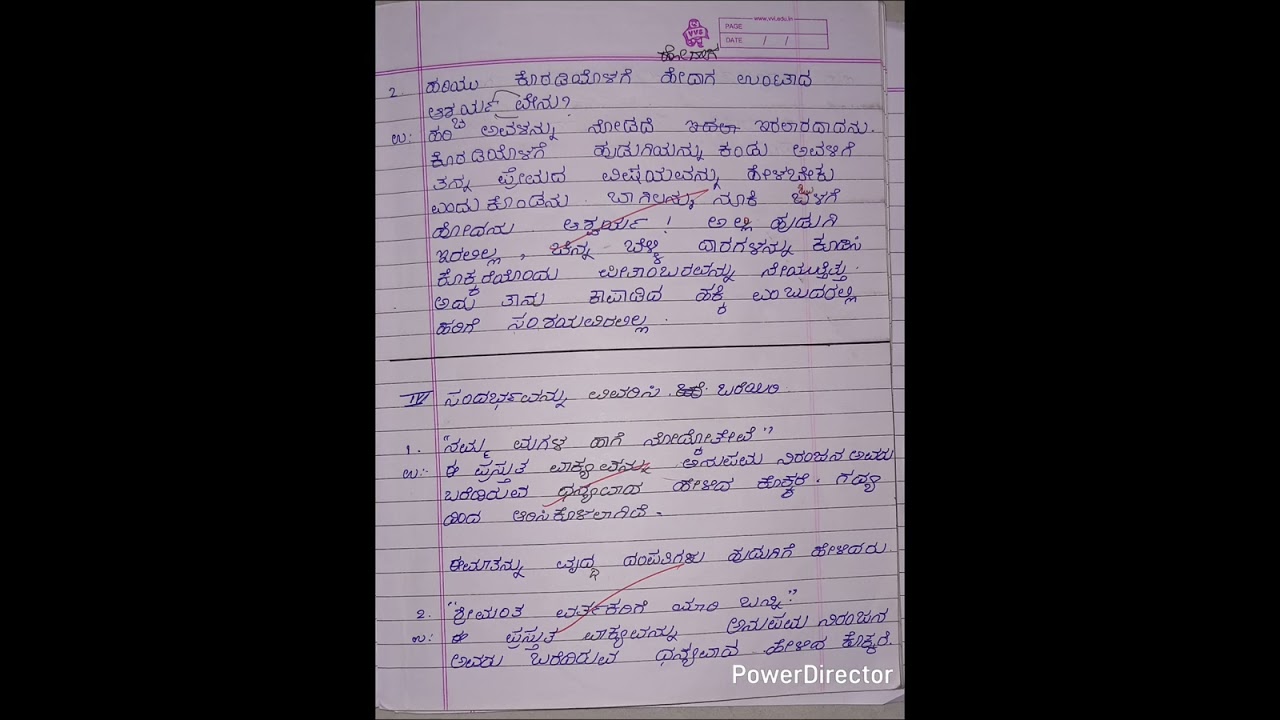 www.vvi.edu.in
VVS
PAGE
DATE / /
ಹೋದಾಗ
2. ಹರಿಯು ಕೊಠಡಿಯೊಳಗೆ ಹೇದಾಗ ಉಂಟಾದ
ಆಶ್ಚರ್ಯವೇನು?
ಉ: ಹರಿ ಅವಳನ್ನು ನೋಡದೆ ಇರಲಾರದಾದನು.
ಕೊಠಡಿಯೊಳಗೆ ಹುಡುಗಿಯನ್ನು ಕಂಡು ಅವಳಿಗೆ
ತನ್ನ ಪ್ರೇಮದ ವಿಷಯವನ್ನು ಹೇಳಬೇಕು
ಎಂದುಕೊಂಡನು. ಬಾಗಿಲನ್ನು ನೂಕಿ ಒಳಗೆ
ಹೋದನು. ಆಶ್ಚರ್ಯ! ಅಲ್ಲಿ ಹುಡುಗಿ
ಇರಲಿಲ್ಲ, ಚಿನ್ನ ಬೆಳ್ಳಿ ದಾರಗಳನ್ನು ಕೂಡಿಸಿ
ಕೊಕ್ಕರೆಯೊಂದು ಪೀತಾಂಬರವನ್ನು ನೇಯುತ್ತಿತ್ತು.
ಅದು ತಾನು ಕಾಪಾಡಿದ ಹಕ್ಕಿ ಎಂಬುದರಲ್ಲಿ
ಹರಿಗೆ ಸಂಶಯವಿರಲಿಲ್ಲ.
IV ಸಂದರ್ಭವನ್ನು ವಿವರಿಸಿ ಬರೆಯಿರಿ
1. "ನಮ್ಮ ಮಗಳ ಹಾಗೆ ನೋಡ್ಕೋತೀವೆ"
ಉ:- ಈ ಪ್ರಸ್ತುತ ವಾಕ್ಯವನ್ನು ಅನುಪಮ ನಿರಂಜನ ಅವರು
ಬರೆದಿರುವ ಧನ್ಯವಾದ ಹೇಳಿದ ಕೊಕ್ಕರೆ. ಗದ್ಯ
ದಿಂದ ಆರಿಸಿಕೊಳಲಾಗಿದೆ.
ಈಮಾತನ್ನು ವೃದ್ಧ ದಂಪತಿಗಳು ಹುಡುಗಿಗೆ ಹೇಳಿದರು.
2. "ಶ್ರೀಮಂತ ವರ್ತಕರಿಗೆ ಮಾರಿ ಬನ್ನಿ"
ಉ: ಈ ಪ್ರಸ್ತುತ ವಾಕ್ಯವನ್ನು ಅನುಪಮ ನಿರಂಜನ
ಅವರು ಬರೆದಿರುವ ಧನ್ಯವಾದ ಹೇಳಿದ ಕೊಕ್ಕರೆ.
PowerDirector